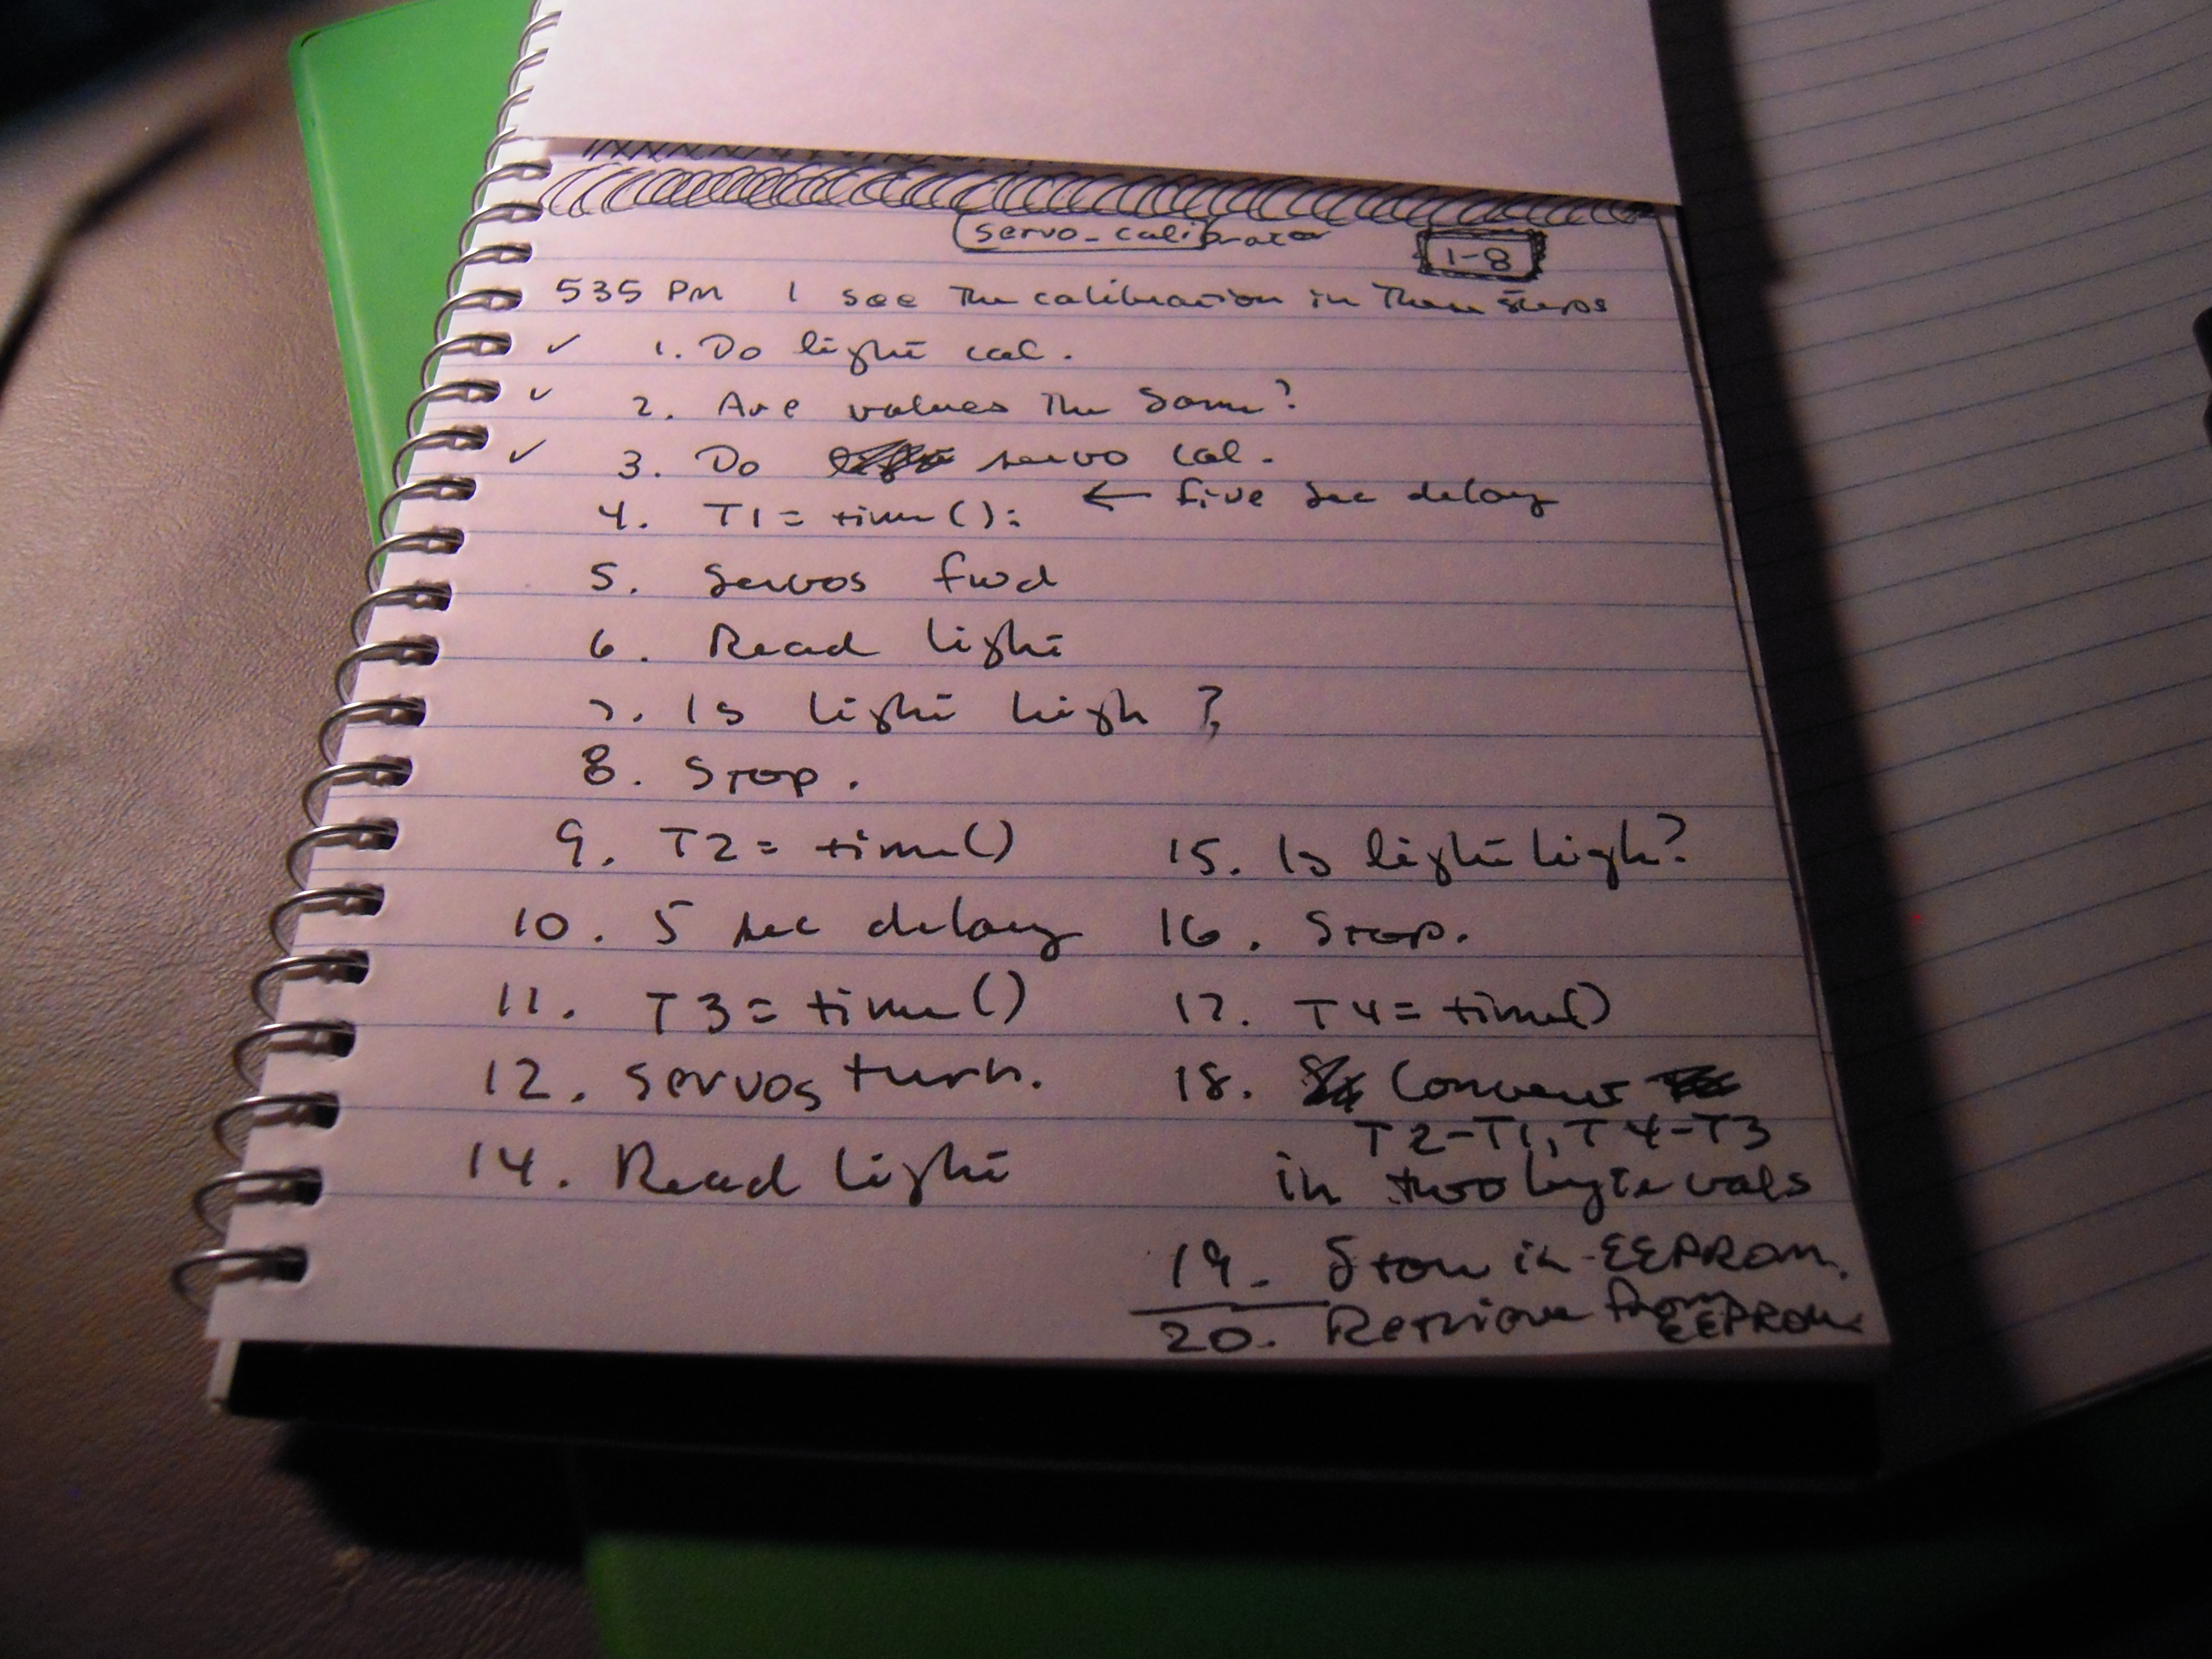 servo_calibrator
1-8
535 PM I see The calibration in These steps
✓ 1. Do light cal.
✓ 2. Are values The Same?
✓ 3. Do servo cal.
← five sec delay
4. T1 = time();
5. Servos fwd
6. Read light
7. Is light high?
8. Stop.
9. T2 = time()
10. 5 sec delay
11. T3 = time()
12. servos turn.
14. Read light
15. Is light high?
16. Stop.
17. T4 = time()
18. Convert
T2-T1, T4-T3
in two byte vals
19. Store in EEPROM.
20. Retrieve from
EEPROM